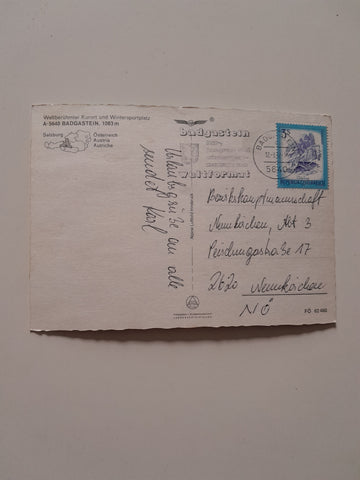 Weltberühmter Kurort und Wintersportplatz
A-5640 BADGASTEIN, 1083 m
Salzburg
Österreich
Austria
Autriche
Urlaubsgrüße an alle
sendet Karl
badgastein
weltformat
BAD
5640
3S
REPUBLIK ÖSTERREICH
Bezirkshauptmannschaft
Neunkirchen, Abt 3
Peischingerstraße 17
2620 Neunkirchen
NÖ
FÖ 62 480